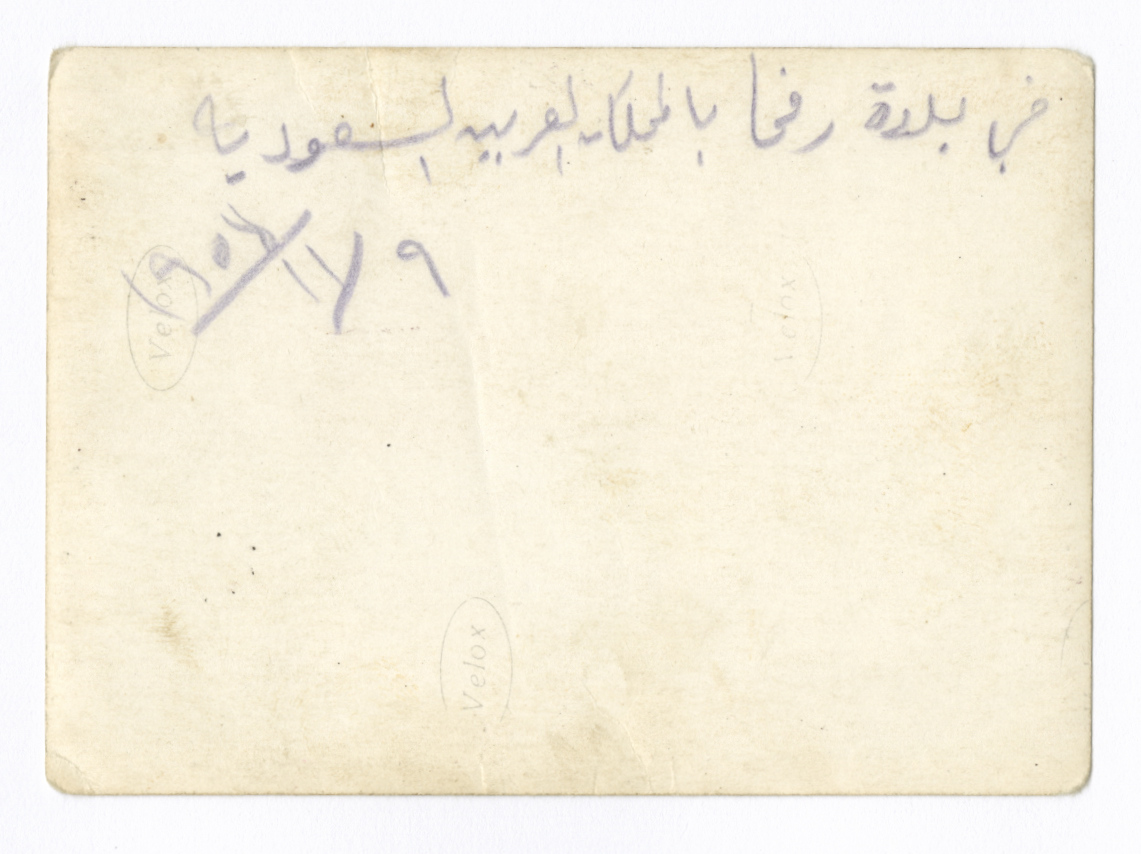 في بلدة رفحا بالمملكة العربية السعودية
٩/١١/١٩٥٧
Velox
Velox
Velox